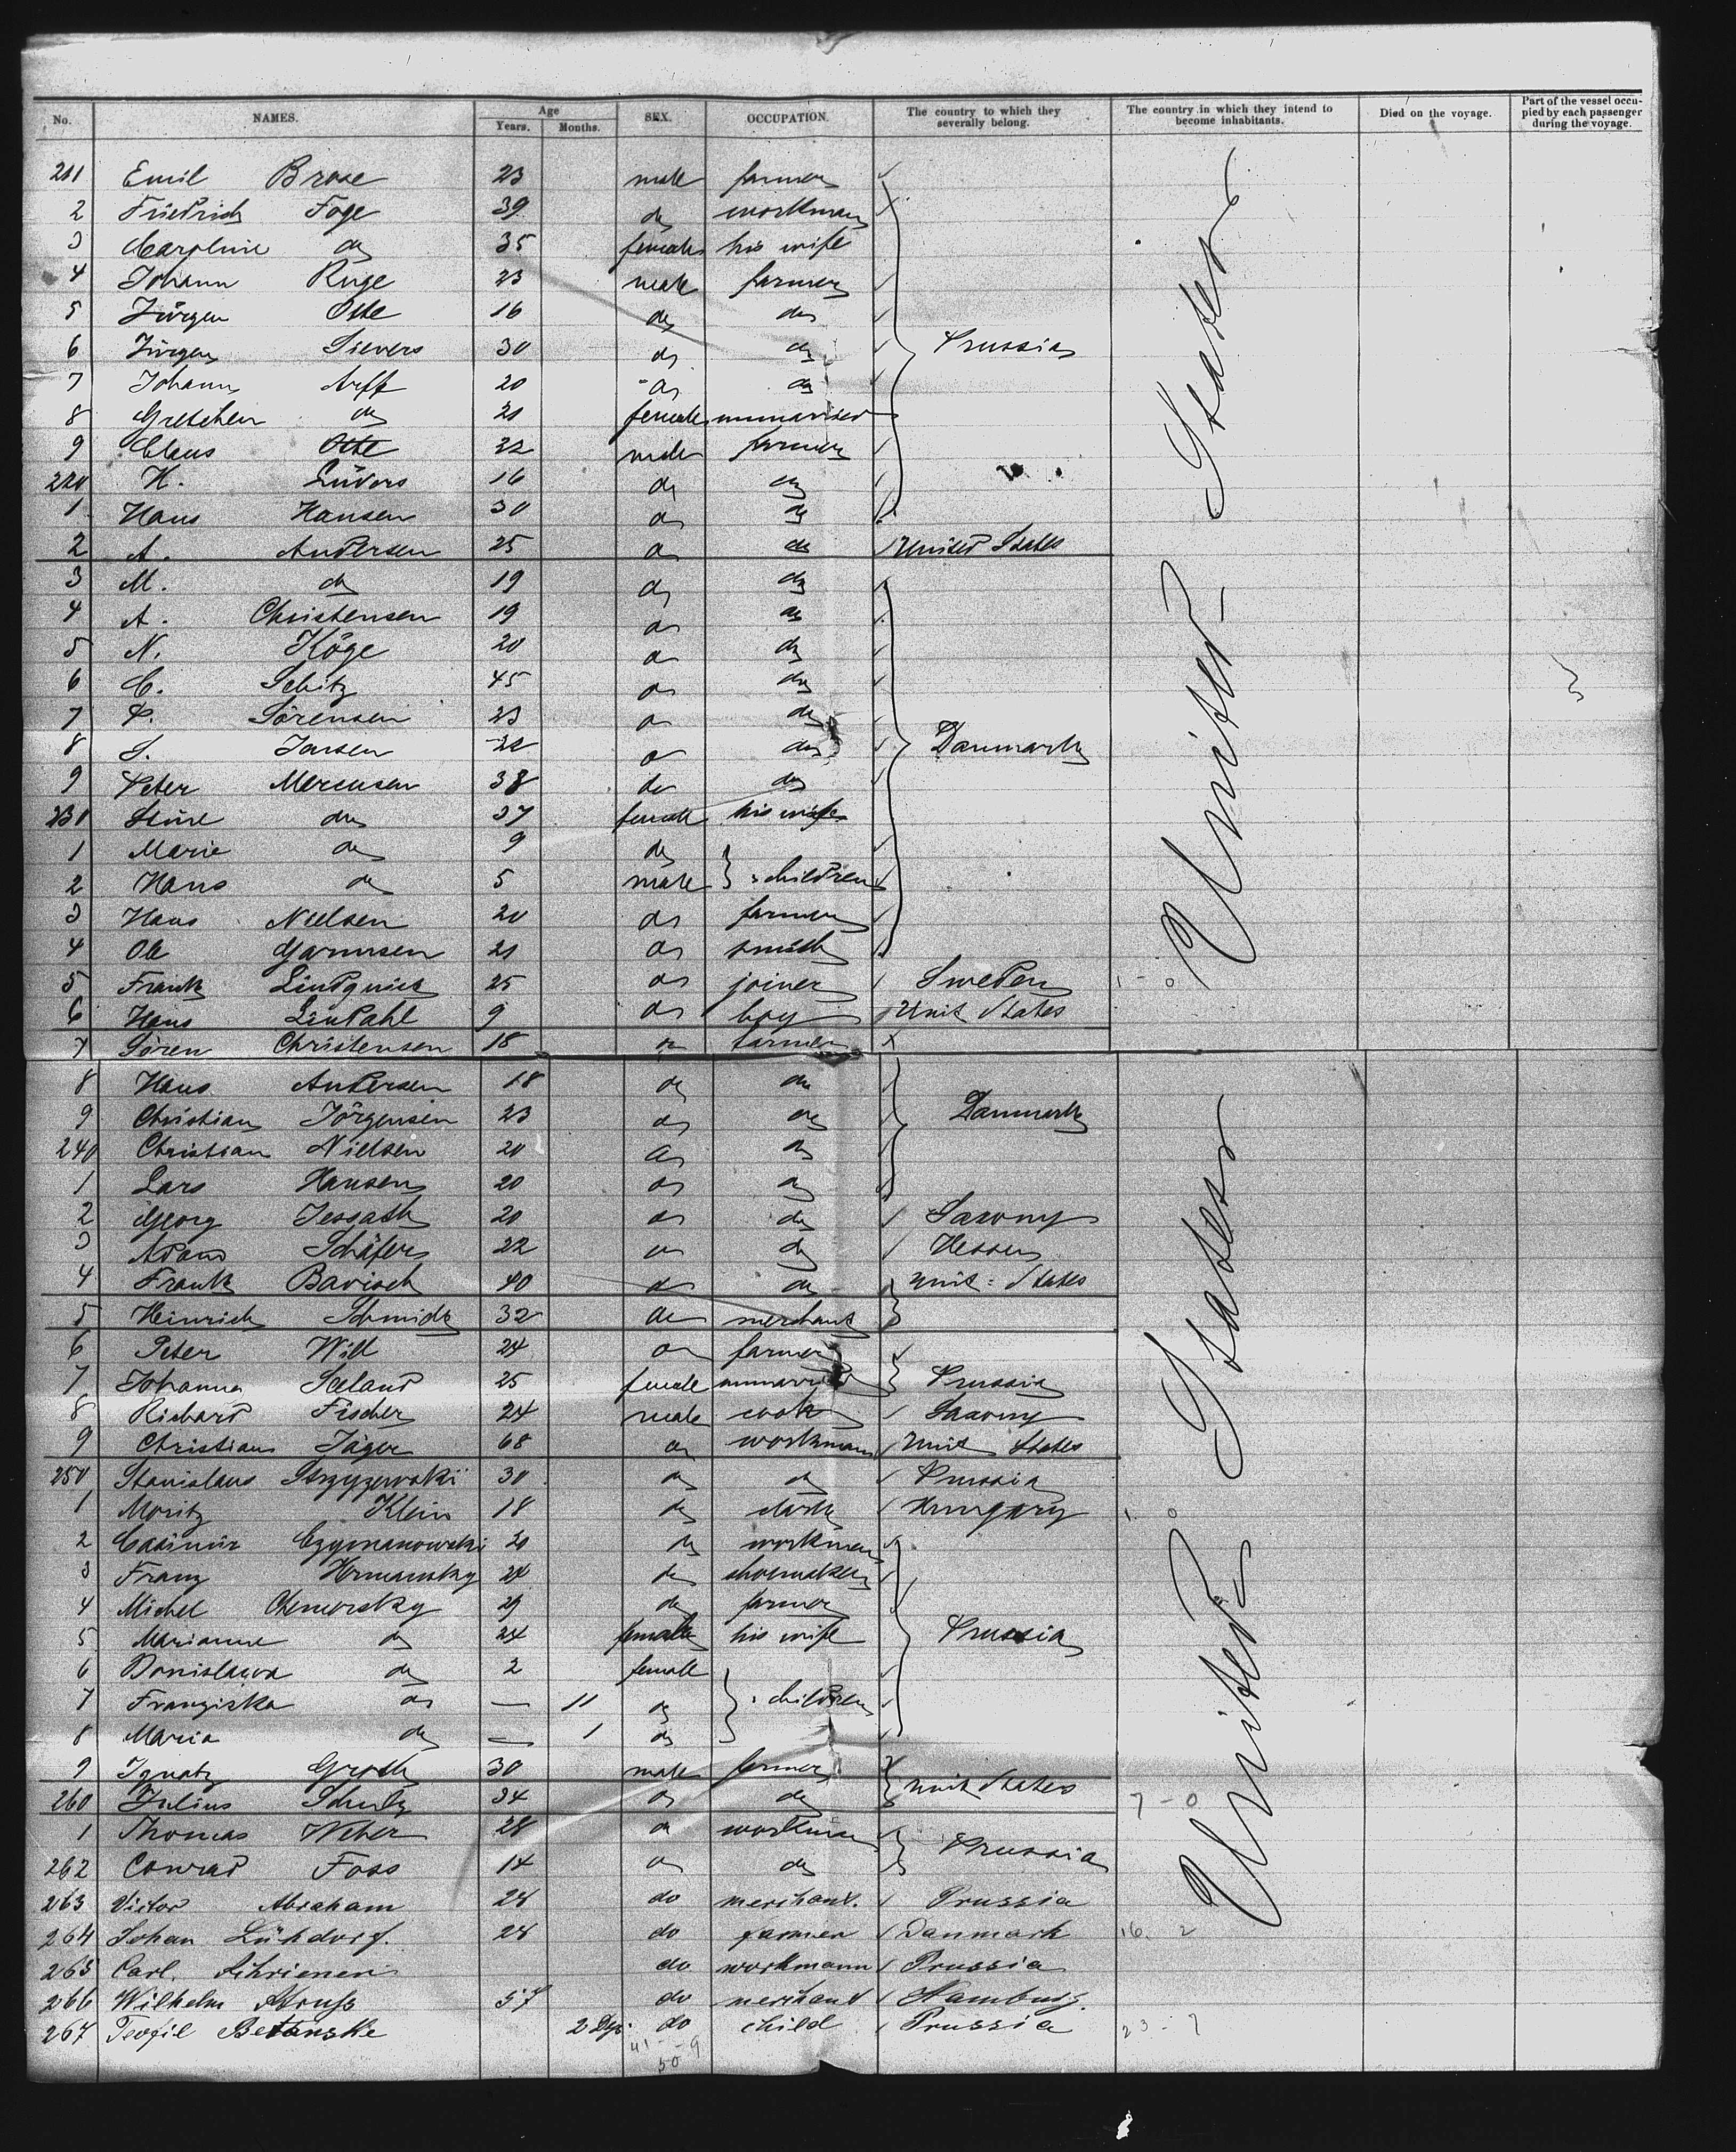 No. NAMES. Age Years. Months. SEX. OCCUPATION. The country to which they severally belong. The country in which they intend to become inhabitants. Died on the voyage. Part of the vessel occupied by each passenger during the voyage.
211 Emil Brose 23 male farmer
2 Friedrich Foge 39 do workman
3 Caroline do 35 female his wife
4 Johann Ruge 23 male farmer
5 Jürgen Otte 16 do do
6 Jürgen Sievers 30 do do Prussia
7 Johann Arff 20 do do
8 Gretchen do 21 female unmarried
9 Claus Otte 22 male farmer
220 H. Lüders 16 do do
1 Hans Hansen 30 do do
2 A. Andersen 25 do do United States
3 M. do 19 do do
4 A. Christensen 19 do do
5 N. Köge 20 do do
6 C. Schitz 45 do do
7 P. Sörensen 23 do do
8 S. Jansen 22 do do Danmark
9 Peter Mercusen 38 do do
230 Stine do 37 female his wife
1 Marie do 9 do
2 Hans do 5 male children
3 Hans Nielsen 20 do farmer
4 Ole 21 do smith
5 Frank Lindquist 25 do joiner Sweden
6 Hans Lindahl 9 do boy Unit States
7 Sören Christensen 18 do farmer
8 Hans Andersen 18 do do
9 Christian Jörgensen 23 do do Danmark
240 Christian Nielsen 20 do do
1 Lars Hansen 20 do do
2 Georg Jessath 20 do do Saxony
3 Adam Schäfer 22 do do Hessen
4 Frank Bavisch 40 do do Unit: States
5 Heinrich Schmidt 32 do merchant
6 Peter Will 24 do farmer
7 Johanna Seeland 25 female unmarried Prussia
8 Richard Fischer 24 male cook Saxony
9 Christian Jäger 68 do workman Unit States
250 Stanislaus Strzyzewski 30 do do Prussia
1 Moritz Klein 18 do clerk Hungary
2 Casimir Czymanowski 20 do workman
3 Franz Hrmansky 24 do shoemaker
4 Michel Chmorsky 29 do farmer
5 Marianne do 24 female his wife Prussia
6 Bonislawa do 2 female
7 Franziska do — 11 do children
8 Maria do — 1 do
9 Ignatz Groth 30 male farmer
260 Julius Schulz 34 do do Unit States 7 - 0
1 Thomas Weber 28 do workman
262 Conrad Foss 14 do do Prussia
263 Victor Abraham 28 do merchant. Prussia
264 Johan Lühdorf. 28 do farmer Danmark 16. 2
265 Carl. do workmann Prussia
266 Wilhelm 57 do merchant Hamburg.
267 Teofil Betanske 2 Dys. do child Prussia 23 - 7
41 - 9
50
United States
United States